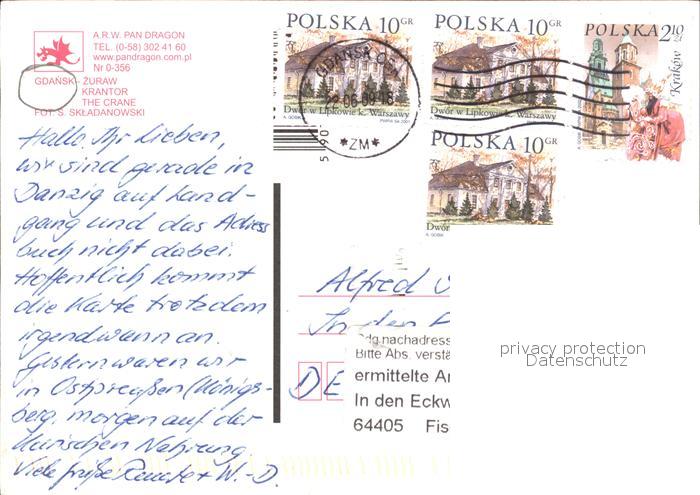 A.R.W. PAN DRAGON
TEL. (0-58) 302 41 60
www.pandragon.com.pl
Nr 0-356
GDAŃSK - ŻURAW
KRANTOR
THE CRANE
FOT. S. SKŁADANOWSKI
POLSKA 10 GR
Dwór w Lipkowie k. Warszawy
POLSKA 10 GR
Dwór w Lipkowie k. Warszawy
POLSKA 2,10 zł
Kraków
POLSKA 10 GR
Dwór
GDAŃSK
*ZM*
Hallo, Ihr Lieben,
wir sind gerade in
Danzig auf Land-
gang und das Adress
buch nicht dabei.
Hoffentlich kommt
die Karte trotzdem
irgendwann an.
Gestern waren wir
in Ostpreußen (Königs-
berg, morgen auf der
Kurischen Nehrung.
Viele Grüße + W.-D.
Alfred
In den
DE
dg.nachadress
Bitte Abs. verstä
ermittelte An
In den Eckw
64405 Fis
privacy protection
Datenschutz